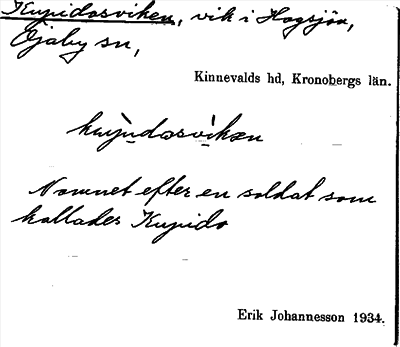 Kupidosviken, vik i Hagsjön,
Öjaby sn,
Kinnevalds hd, Kronobergs län.
Namnet efter en soldat som
kallades Kupido
Erik Johannesson 1934.